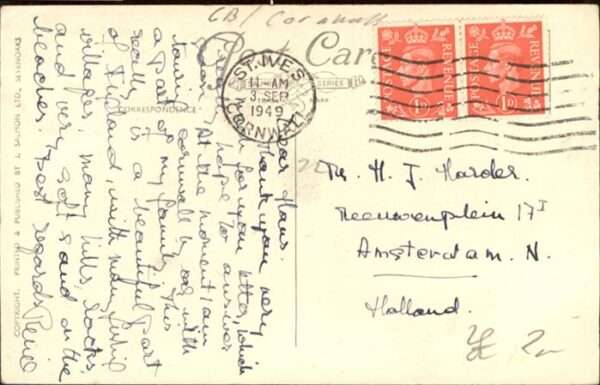 CB/ Cornwall
Post Card
CORRESPONDENCE
ST. IVES
11-AM
3 SEP
1949
CORNWALL
POSTAGE REVENUE
1D
POSTAGE REVENUE
1D
Dear Hans.
Thank you very
much for your letter, which
I hope to answer
soon. At the moment I am
touring Cornwall by car with
a part of my family. This
really is a beautiful part
of England, with many little
villages, many hills, rocks
and very soft sand on the
beaches. Best regards
Mr. H. J. Harder.
17 I
Amsterdam. N.
Holland.
COPYRIGHT. PRINTED & PUBLISHED BY J. SALMON LTD., SEVENOAKS